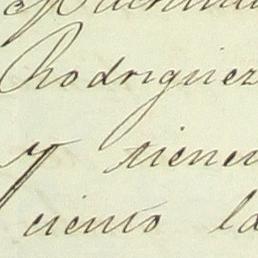 Rodriguez
y tienen
ciento la